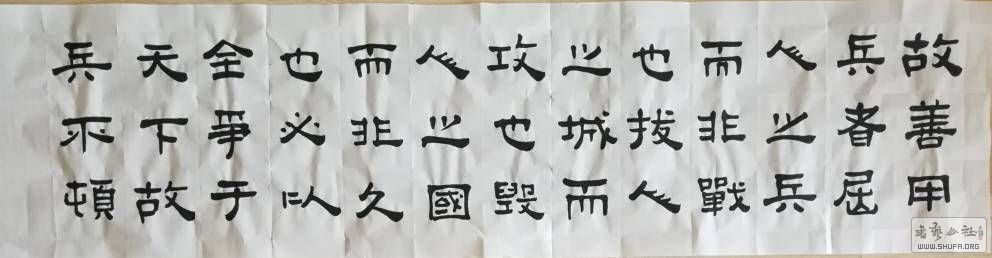 故善用
兵者屈
人之兵
而非戰
也拔人
之城而
攻也毀
人之國
而非久
也必以
全爭于
天下故
兵不頓
WWW.SHUFA.ORG